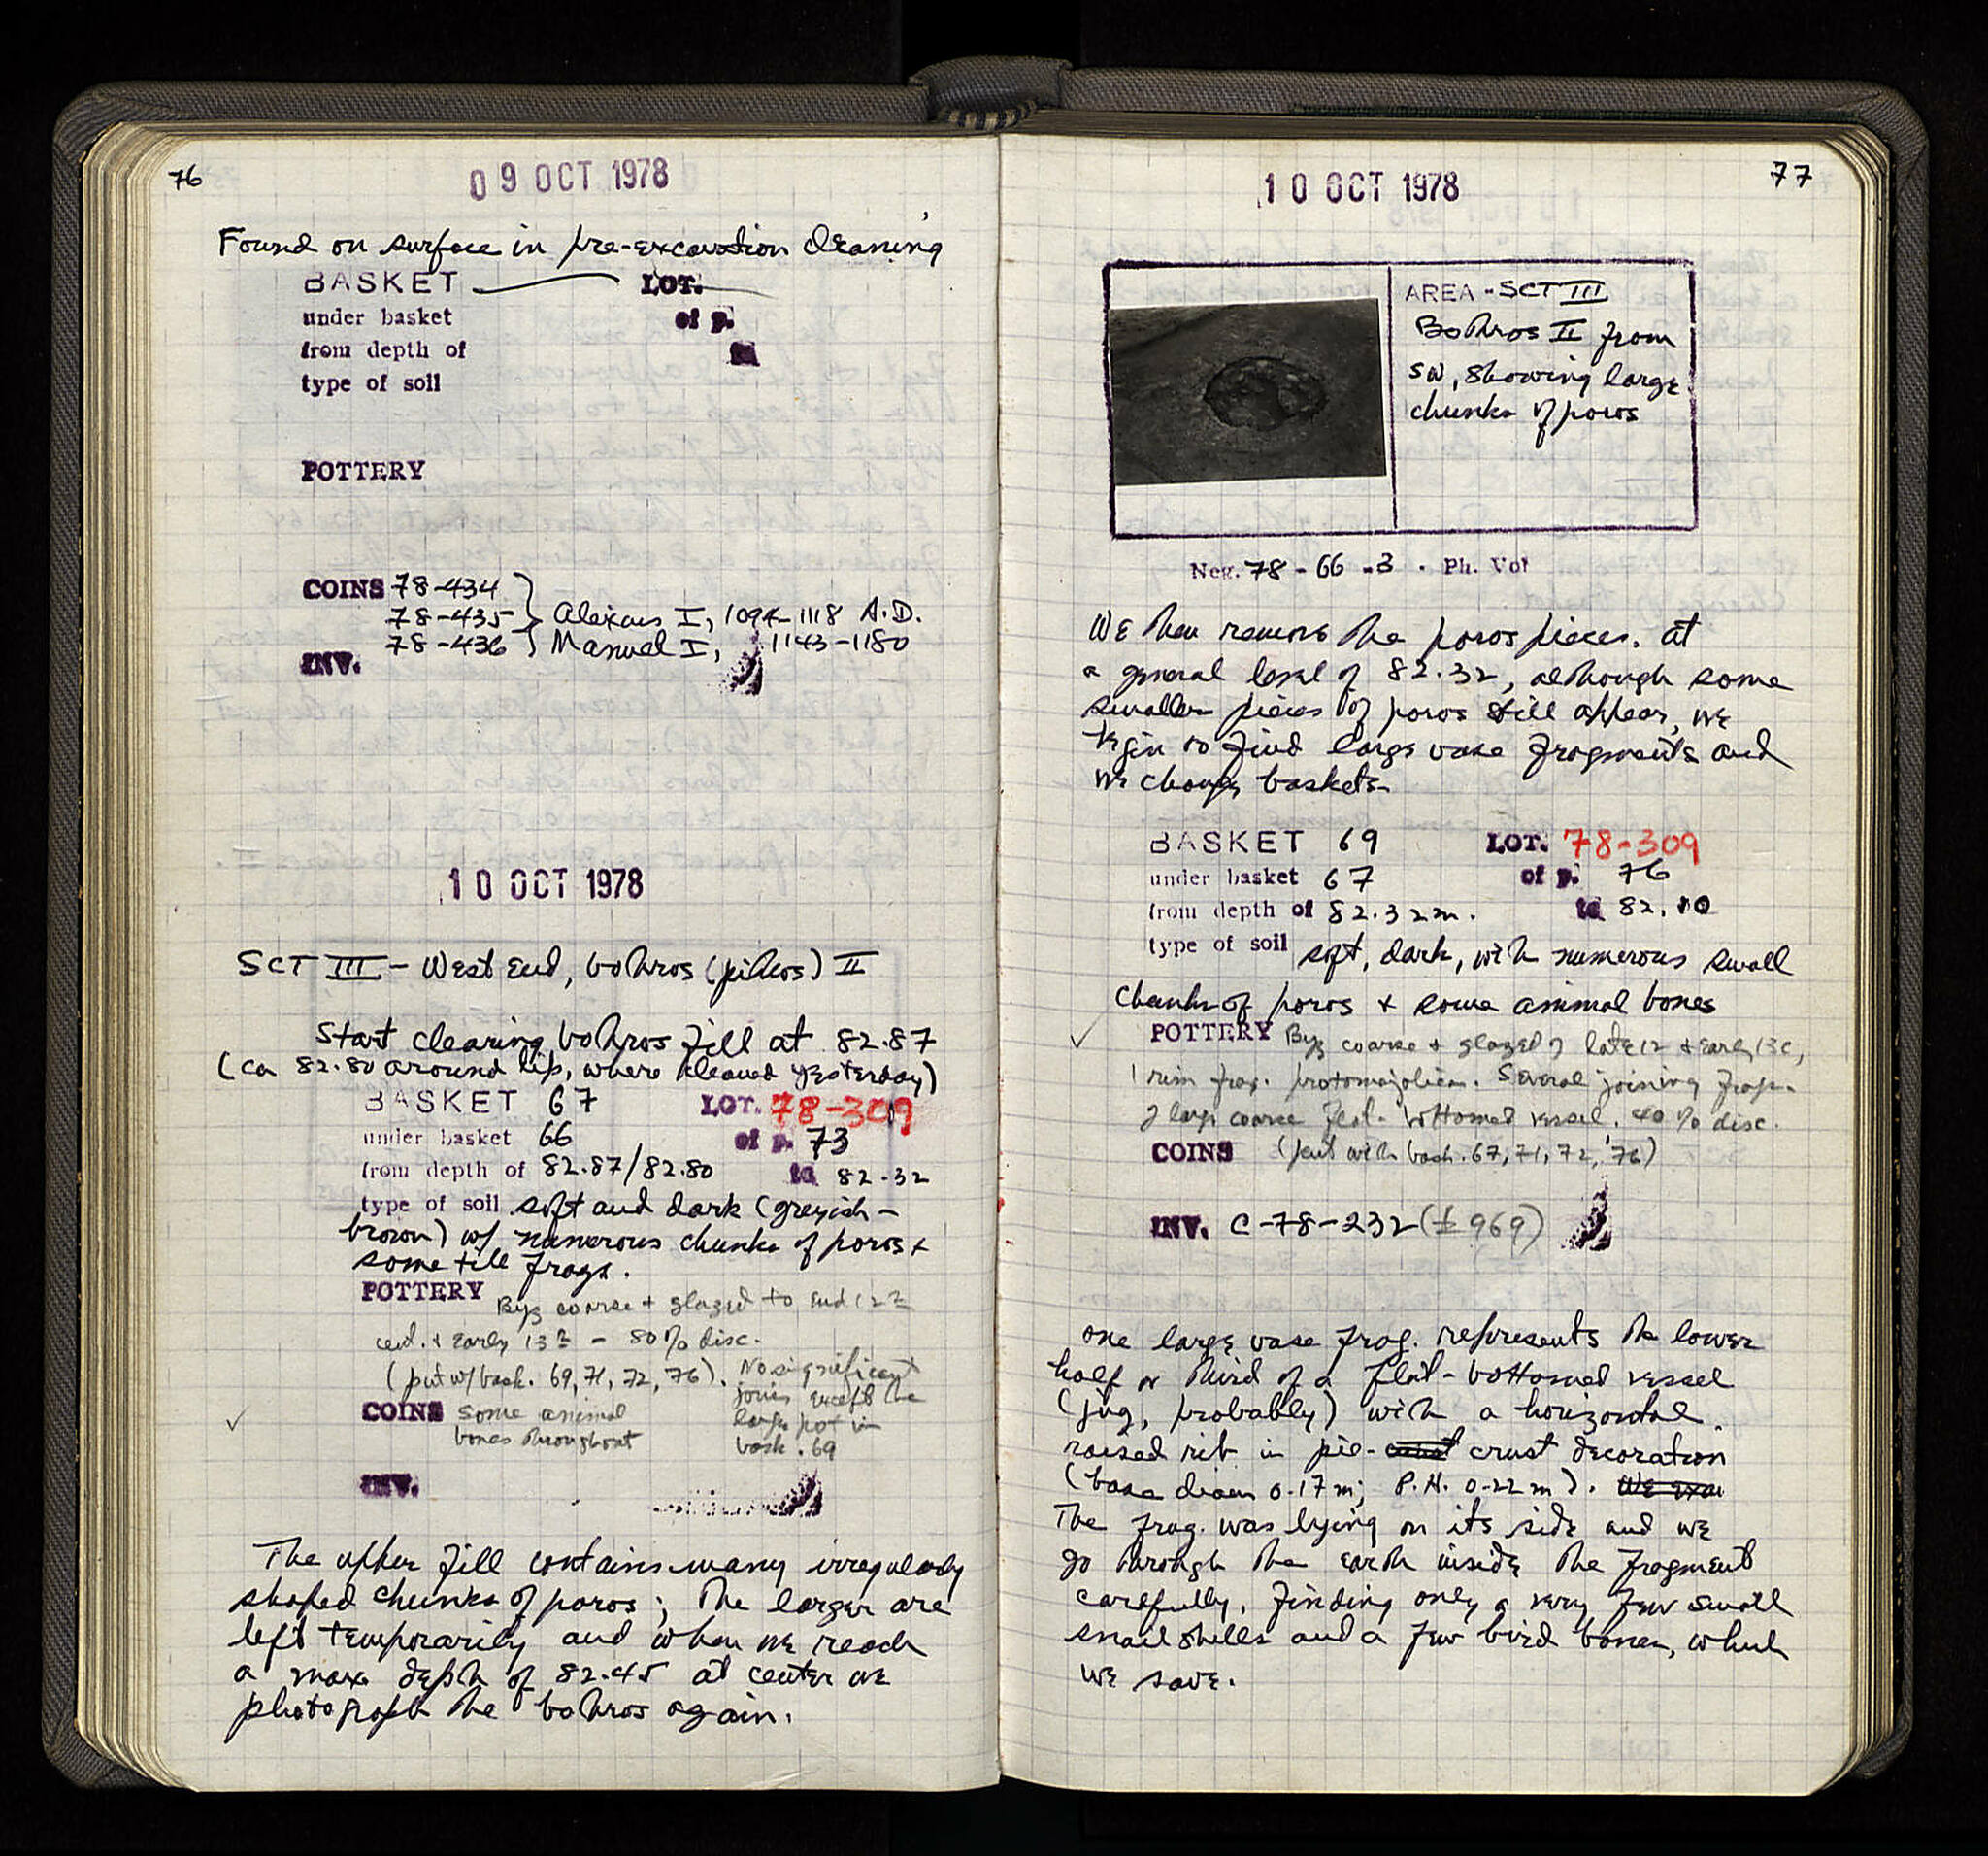 76
09 OCT 1978
Found on surface in pre-excavation cleaning
BASKET — LOT.
under basket of p.
from depth of to
type of soil
POTTERY
COINS 78-434
78-435 } Alexius I, 1094-1118 A.D.
78-436 } Manuel I, 1143-1180
INV.
10 OCT 1978
SCT III - West End, bothros (pithos) II
Start clearing bothros fill at 82.87
(ca 82.80 around lip, where cleaned yesterday)
BASKET 67 LOT. 78-309
under basket 66 of p. 73
from depth of 82.87/82.80 to 82.32
type of soil soft and dark (greyish-
brown) w/ numerous chunks of poros +
some tile frags.
POTTERY Byz coarse + glazed to end 12th
cent. + early 13th - 80% disc.
(put w/bask. 69, 71, 72, 76). No significant
joins except the
large pot in
bask. 69
COINS some animal
bones throughout
INV.
The upper fill contains many irregularly
shaped chunks of poros; the larger are
left temporarily and when we reach
a max depth of 82.45 at center we
photograph the bothros again.
77
10 OCT 1978
AREA - SCT III
Bothros II from
SW, showing large
chunks of poros
Neg. 78-66-3 . Ph. Vol
We then remove the poros pieces. At
a general level of 82.32, although some
smaller pieces of poros still appear, we
begin to find large vase fragments and
we change baskets.
BASKET 69 LOT. 78-309
under basket 67 of p. 76
from depth of 82.32m. to 82.10
type of soil soft, dark, with numerous small
chunks of poros + some animal bones
POTTERY Byz coarse + glazed of late 12 + early 13c,
1 rim frag. protomajolica. Several joining frags.
of large coarse flat-bottomed vessel. 40% disc.
COINS (put with bask. 67, 71, 72, 76)
INV. C-78-232 (± 969)
One large vase frag. represents the lower
half or third of a flat-bottomed vessel
(jug, probably) with a horizontal
raised rib in pie- crust decoration
(base diam 0.17m; P.H. 0.22m).
The frag. was lying on its side and we
go through the earth inside the fragment
carefully, finding only a very few small
snail shells and a few bird bones, which
we save.